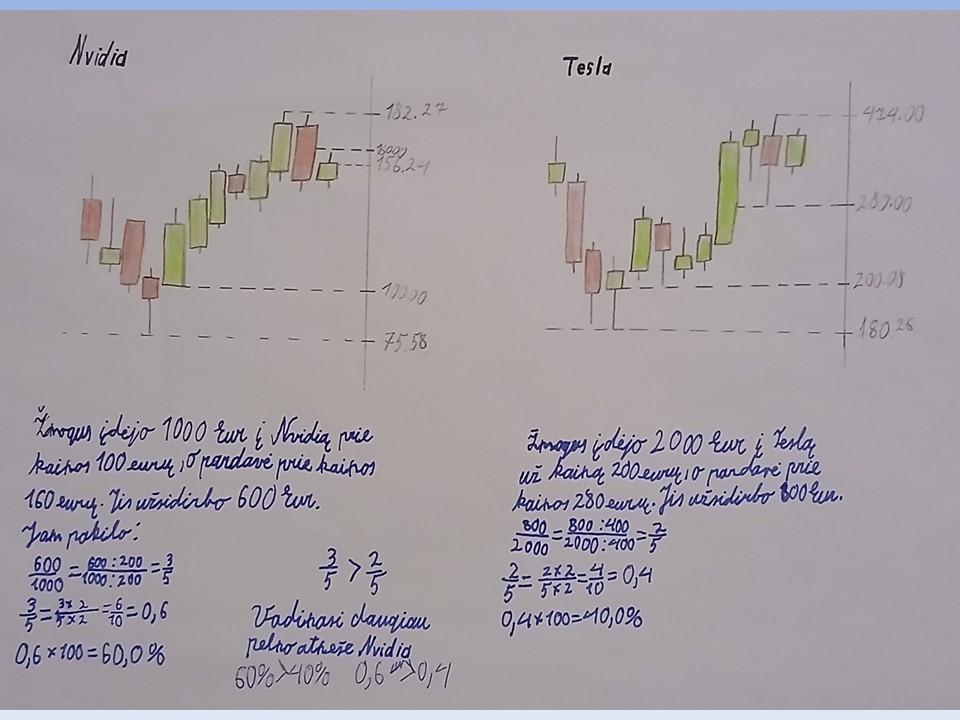 Nvidia
182.27
156.24
100.00
75.58
Žmogus įdėjo 1000 Eur į Nvidią prie
kainos 100 eurų, o pardavė prie kainos
160 eurų. Jis užsidirbo 600 Eur.
Jam pakilo:
600/1000 = 600:200/1000:200 = 3/5
3/5 = 3×2/5×2 = 6/10 = 0,6
0,6 × 100 = 60,0 %
3/5 > 2/5
Vadinasi daugiau
pelno atnešė Nvidia
60% > 40% 0,6 > 0,4
Tesla
474.00
200.08
180.26
Žmogus įdėjo 2000 Eur į Teslą
už kainą 200 eurų, o pardavė prie
kainos 280 eurų. Jis užsidirbo 800 Eur.
800/2000 = 800:400/2000:400 = 2/5
2/5 = 2×2/5×2 = 4/10 = 0,4
0,4 × 100 = 40,0%